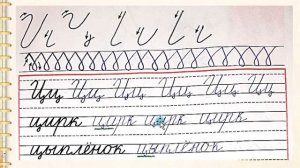 Цц Цц Цц Цц Цц Цц Цц
цирк цирк цирк цирк
цыплёнок цыплёнок